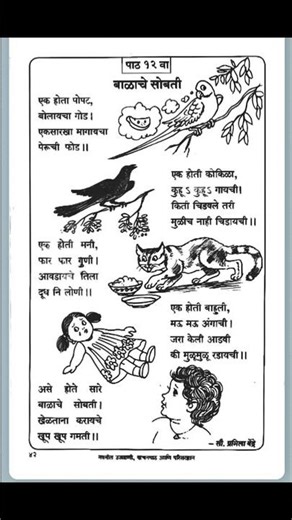 पाठ १२ वा
बाळाचे सोबती
एक होता पोपट,
बोलायचा गोड।
एकसारखा मागायचा
पेरूची फोड॥
एक होती कोकिळा,
कुहू ऽ कुहू ऽ गायची।
किती चिडवले तरी
मुळीच नाही चिडायची॥
एक होती मनी,
फार फार गुणी।
आवडायचे तिला
दूध नि लोणी॥
एक होती बाहुली,
मऊ मऊ अंगाची।
जरा केली आडवी
की मुळूमुळू रडायची॥
असे होते सारे
बाळाचे सोबती।
खेळताना करायचे
खूप खूप गमती॥
– सौ. प्रमिला बेंद्रे
४२
नवनीत उजळणी, वाचनपाठ आणि परिसरज्ञान